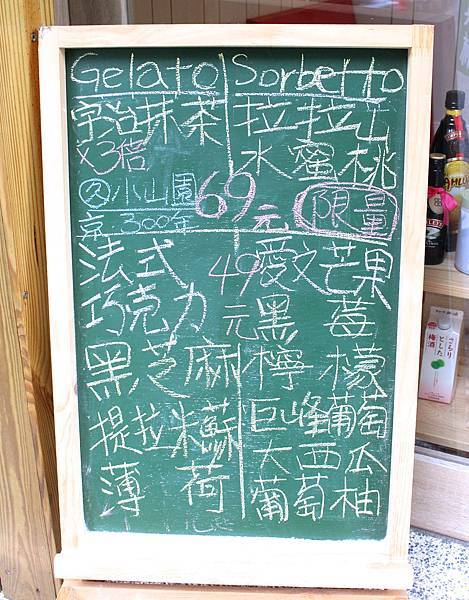 Gelato
宇治抹茶
x3倍
久小山園
京.300年
69元
法式
巧克力
黑芝麻
提拉米蘇
薄荷
49元
Sorbetto
拉拉山
水蜜桃
限量
愛文芒果
黑莓
檸檬
巨峰葡萄
大西瓜
葡萄柚
さらり
とした
梅酒